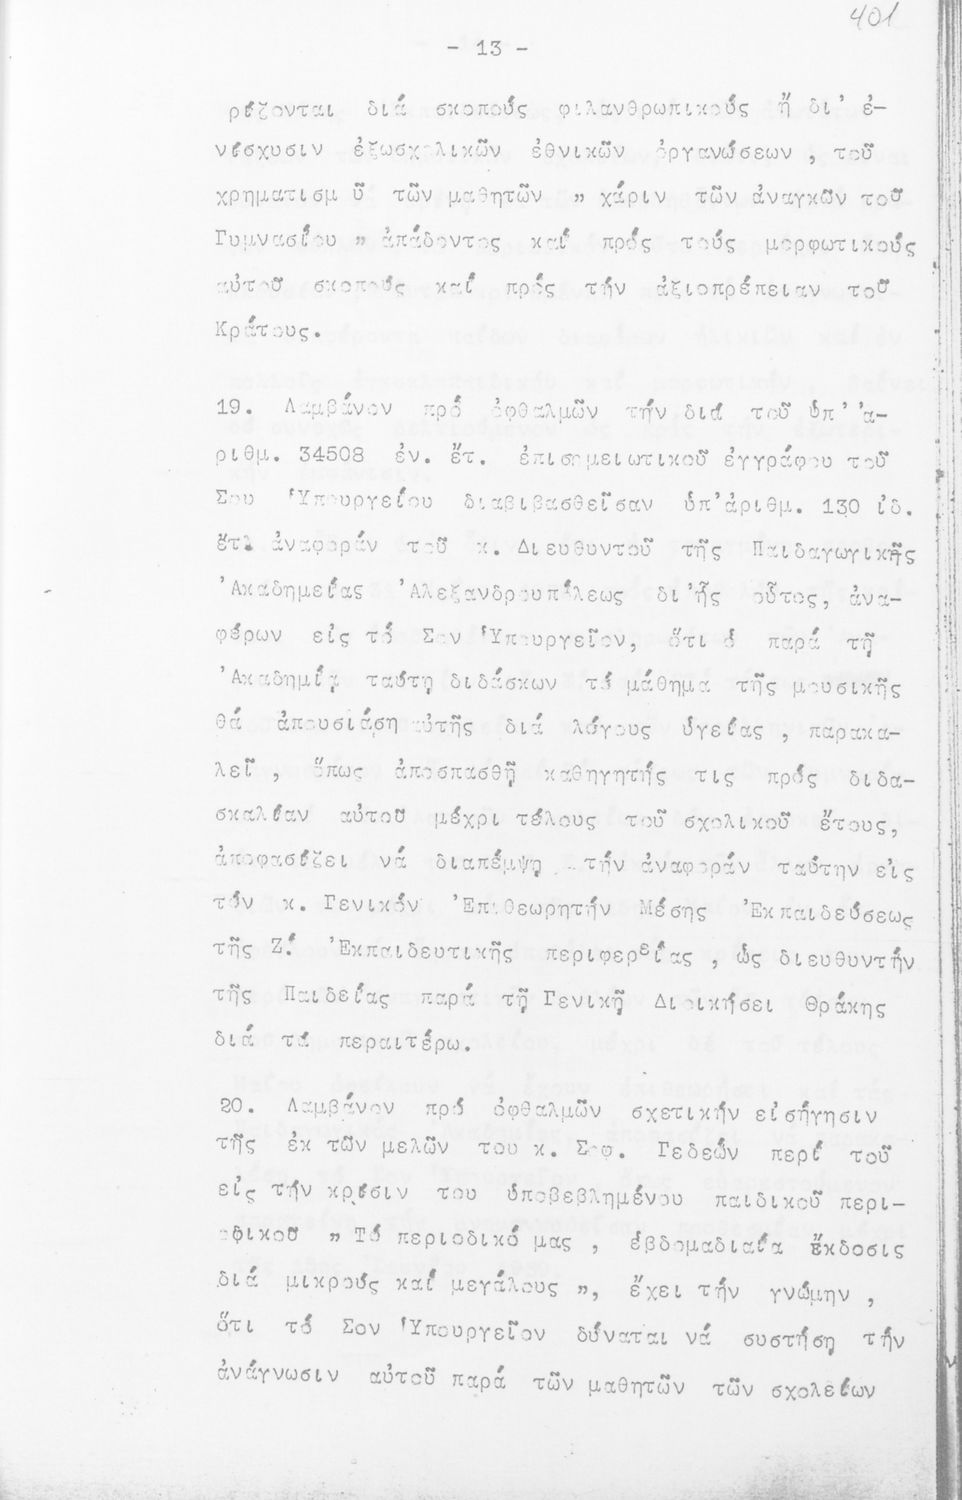 401
- 13 -
ρίζονται διά σκοπούς φιλανθρωπικούς ἤ δι' ἐ-
νίσχυσιν ἐξωσχολικῶν ἐθνικῶν ὀργανώσεων , τοῦ
χρηματισμοῦ τῶν μαθητῶν " χάριν τῶν ἀναγκῶν τοῦ
Γυμνασίου " ἀπάδοντος καί πρός τούς μορφωτικούς
αὐτοῦ σκοπούς καί πρός τήν ἀξιοπρέπειαν τοῦ
Κράτους.
19. Λαμβάνον πρό ὀφθαλμῶν τήν διά τοῦ ὑπ' ἀ-
ριθμ. 34508 ἐν. ἔτ. ἐπισημειωτικοῦ ἐγγράφου τοῦ
Σου Ὑπουργείου διαβιβασθεῖσαν ὑπ'ἀριθμ. 130 ἰδ.
ἔτ. ἀναφοράν τοῦ κ. Διευθυντοῦ τῆς Παιδαγωγικῆς
'Ακαδημείας 'Αλεξανδρουπόλεως δι'ἧς οὗτος, ἀνα-
φέρων εἰς τό Σον Ὑπουργεῖον, ὅτι ὁ παρά τῇ
'Ακαδημίᾳ ταύτῃ διδάσκων τό μάθημα τῆς μουσικῆς
θά ἀπουσιάσῃ αὐτῆς διά λόγους ὑγείας , παρακα-
λεῖ , ὅπως ἀποσπασθῇ καθηγητής τις πρός διδα-
σκαλίαν αὐτοῦ μέχρι τέλους τοῦ σχολικοῦ ἔτους,
ἀποφασίζει νά διαπέμψῃ τήν ἀναφοράν ταύτην εἰς
τόν κ. Γενικόν 'Επιθεωρητήν Μέσης 'Εκπαιδεύσεως
τῆς Ζ! 'Εκπαιδευτικῆς περιφερείας , ὡς διευθυντήν
τῆς Παιδείας παρά τῇ Γενικῇ Διοικήσει Θράκης
διά τά περαιτέρω.
20. Λαμβάνον πρό ὀφθαλμῶν σχετικήν εἰσήγησιν
τῆς ἐκ τῶν μελῶν του κ. Σοφ. Γεδεών περί τοῦ
εἰς τήν κρίσιν του ὑποβεβλημένου παιδικοῦ περι-
οδικοῦ " Τό περιοδικό μας , ἑβδομαδιαία ἔκδοσις
διά μικρούς καί μεγάλους ", ἔχει τήν γνώμην ,
ὅτι τό Σον Ὑπουργεῖον δύναται νά συστήσῃ τήν
ἀνάγνωσιν αὐτοῦ παρά τῶν μαθητῶν τῶν σχολείων